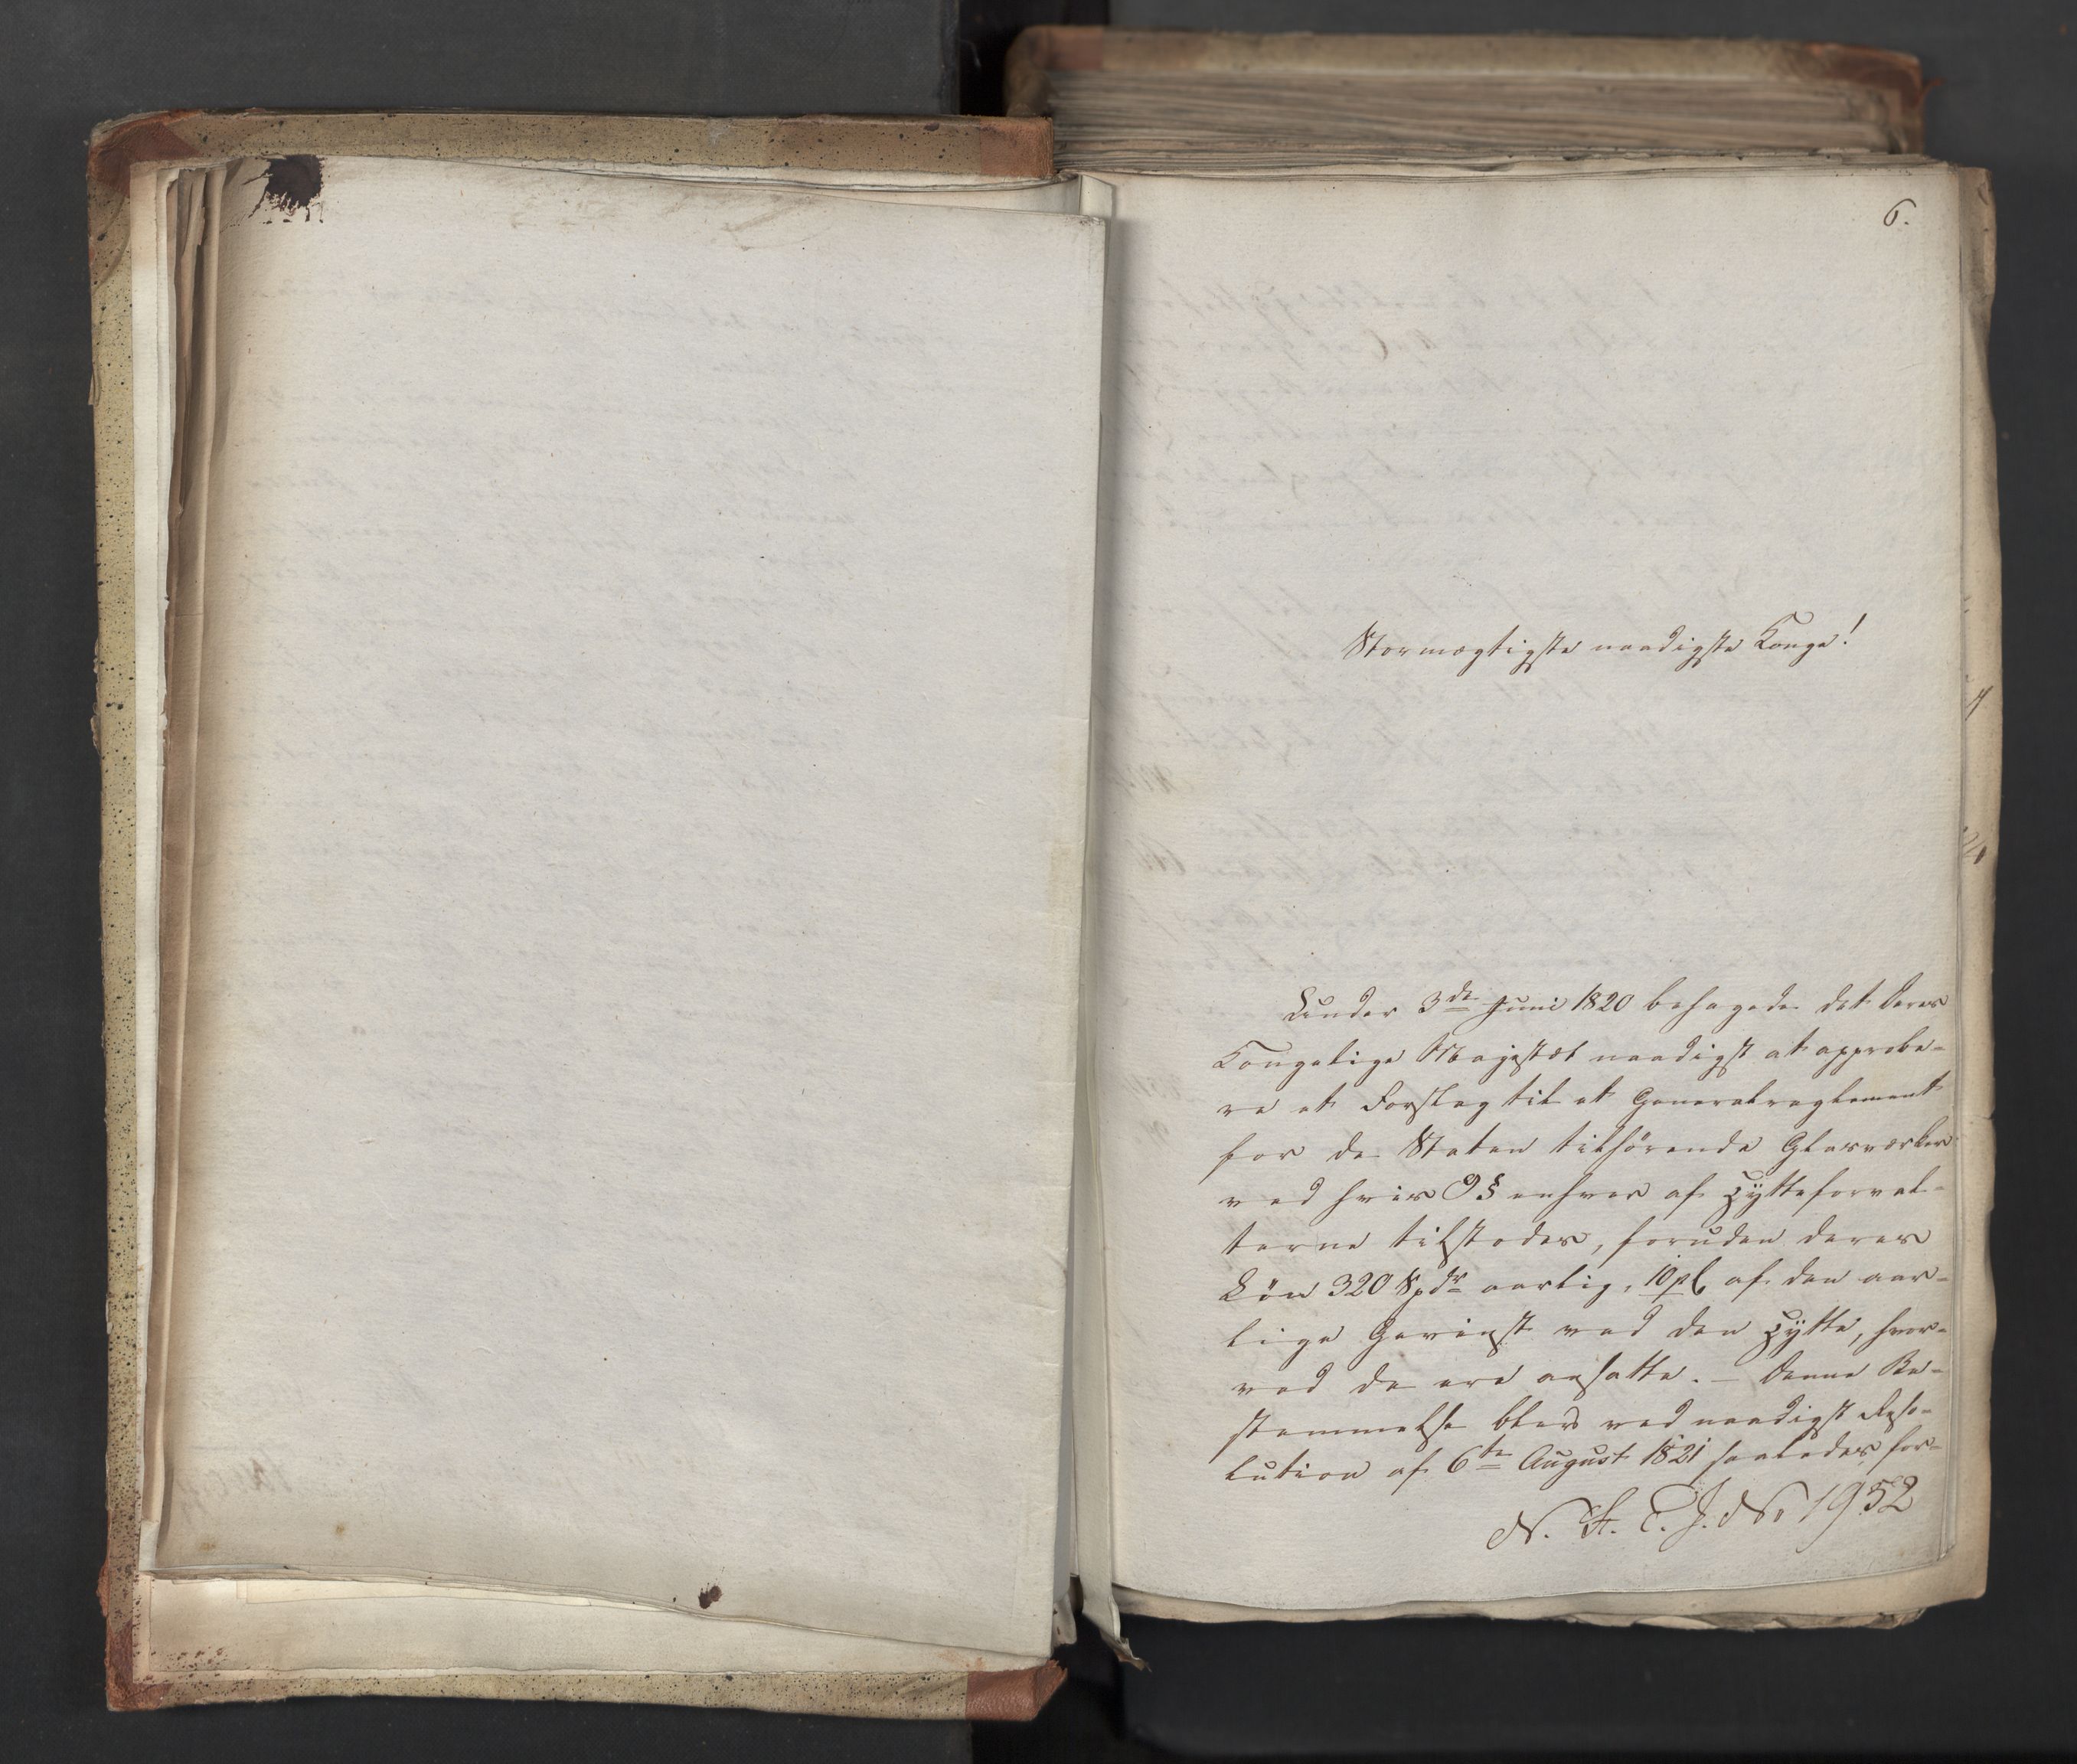 6.
Stormægtigste naadigste Konge!
Under 3de Juni 1820 behagede det Deres
Kongelige Majestæt naadigst at approbe-
re et Forslag til et Generalreglement
for de Staten tilhørende Glasværker
ved hvis 9 § enhver af Hytteforval-
terne tilstodes, foruden deres
Løn 320 Spdr aarlig, 10 pC af den aar-
lige Gevinst ved den Hytte, hvor-
ved de ere ansatte. – Denne Be-
stemmelse blev ved naadigst Reso-
lution af 6te August 1821 saaledes for-
N. St. E. J. No 1952